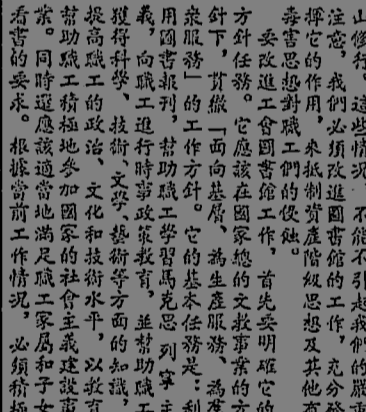 山修行。這些情況，不能不引起我們的嚴重
注意，我們必須改進圖書館的工作，充分發
揮它的作用，來抵制資產階級思想及其他有
毒害思想對職工們的侵蝕。
要改進工會圖書館工作，首先要明確它的
方針任務。它應該在國家總的文教事業的方
針下，貫徹「面向基層、為生產服務、為廣
衆服務」的工作方針。它的基本任務是：利
用圖書報刊，幫助職工學習馬克思列寧主
義，向職工進行時事政策教育，並幫助職工
獲得科學、技術、文學、藝術等方面的知識，
提高職工的政治、文化和技術水平，以教育
幫助職工積極地參加國家的社會主義建設事
業。同時還應該適當地滿足職工家屬和子女
看書的要求。根據當前工作情況，必須積極